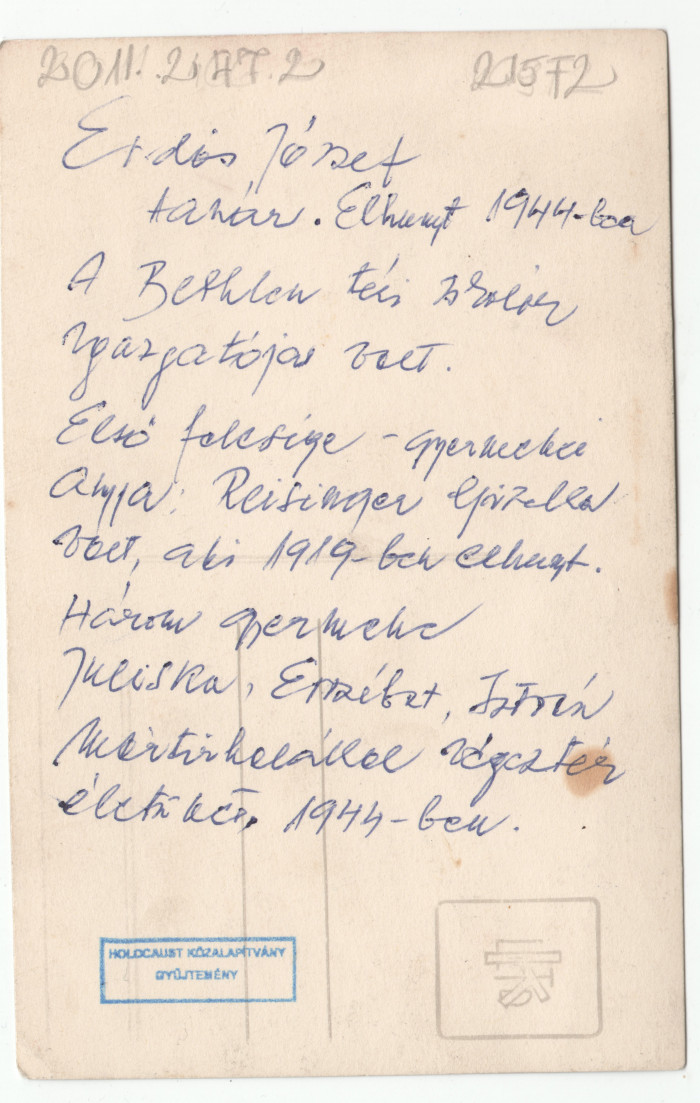 2011.2147.2 21572
Erdős József
tanár. Elhunyt 1944-ben
A Bethlen téri iskola
igazgatója volt.
Első felesége - gyermekei
anyja: Reisinger Gizella
volt, aki 1919-ben elhunyt.
Három gyermeke
Juliska, Erzsébet, István
Mártírhalállal végezték
életüket 1944-ben.
HOLOCAUST KÖZALAPÍTVÁNY
GYŰJTEMÉNY